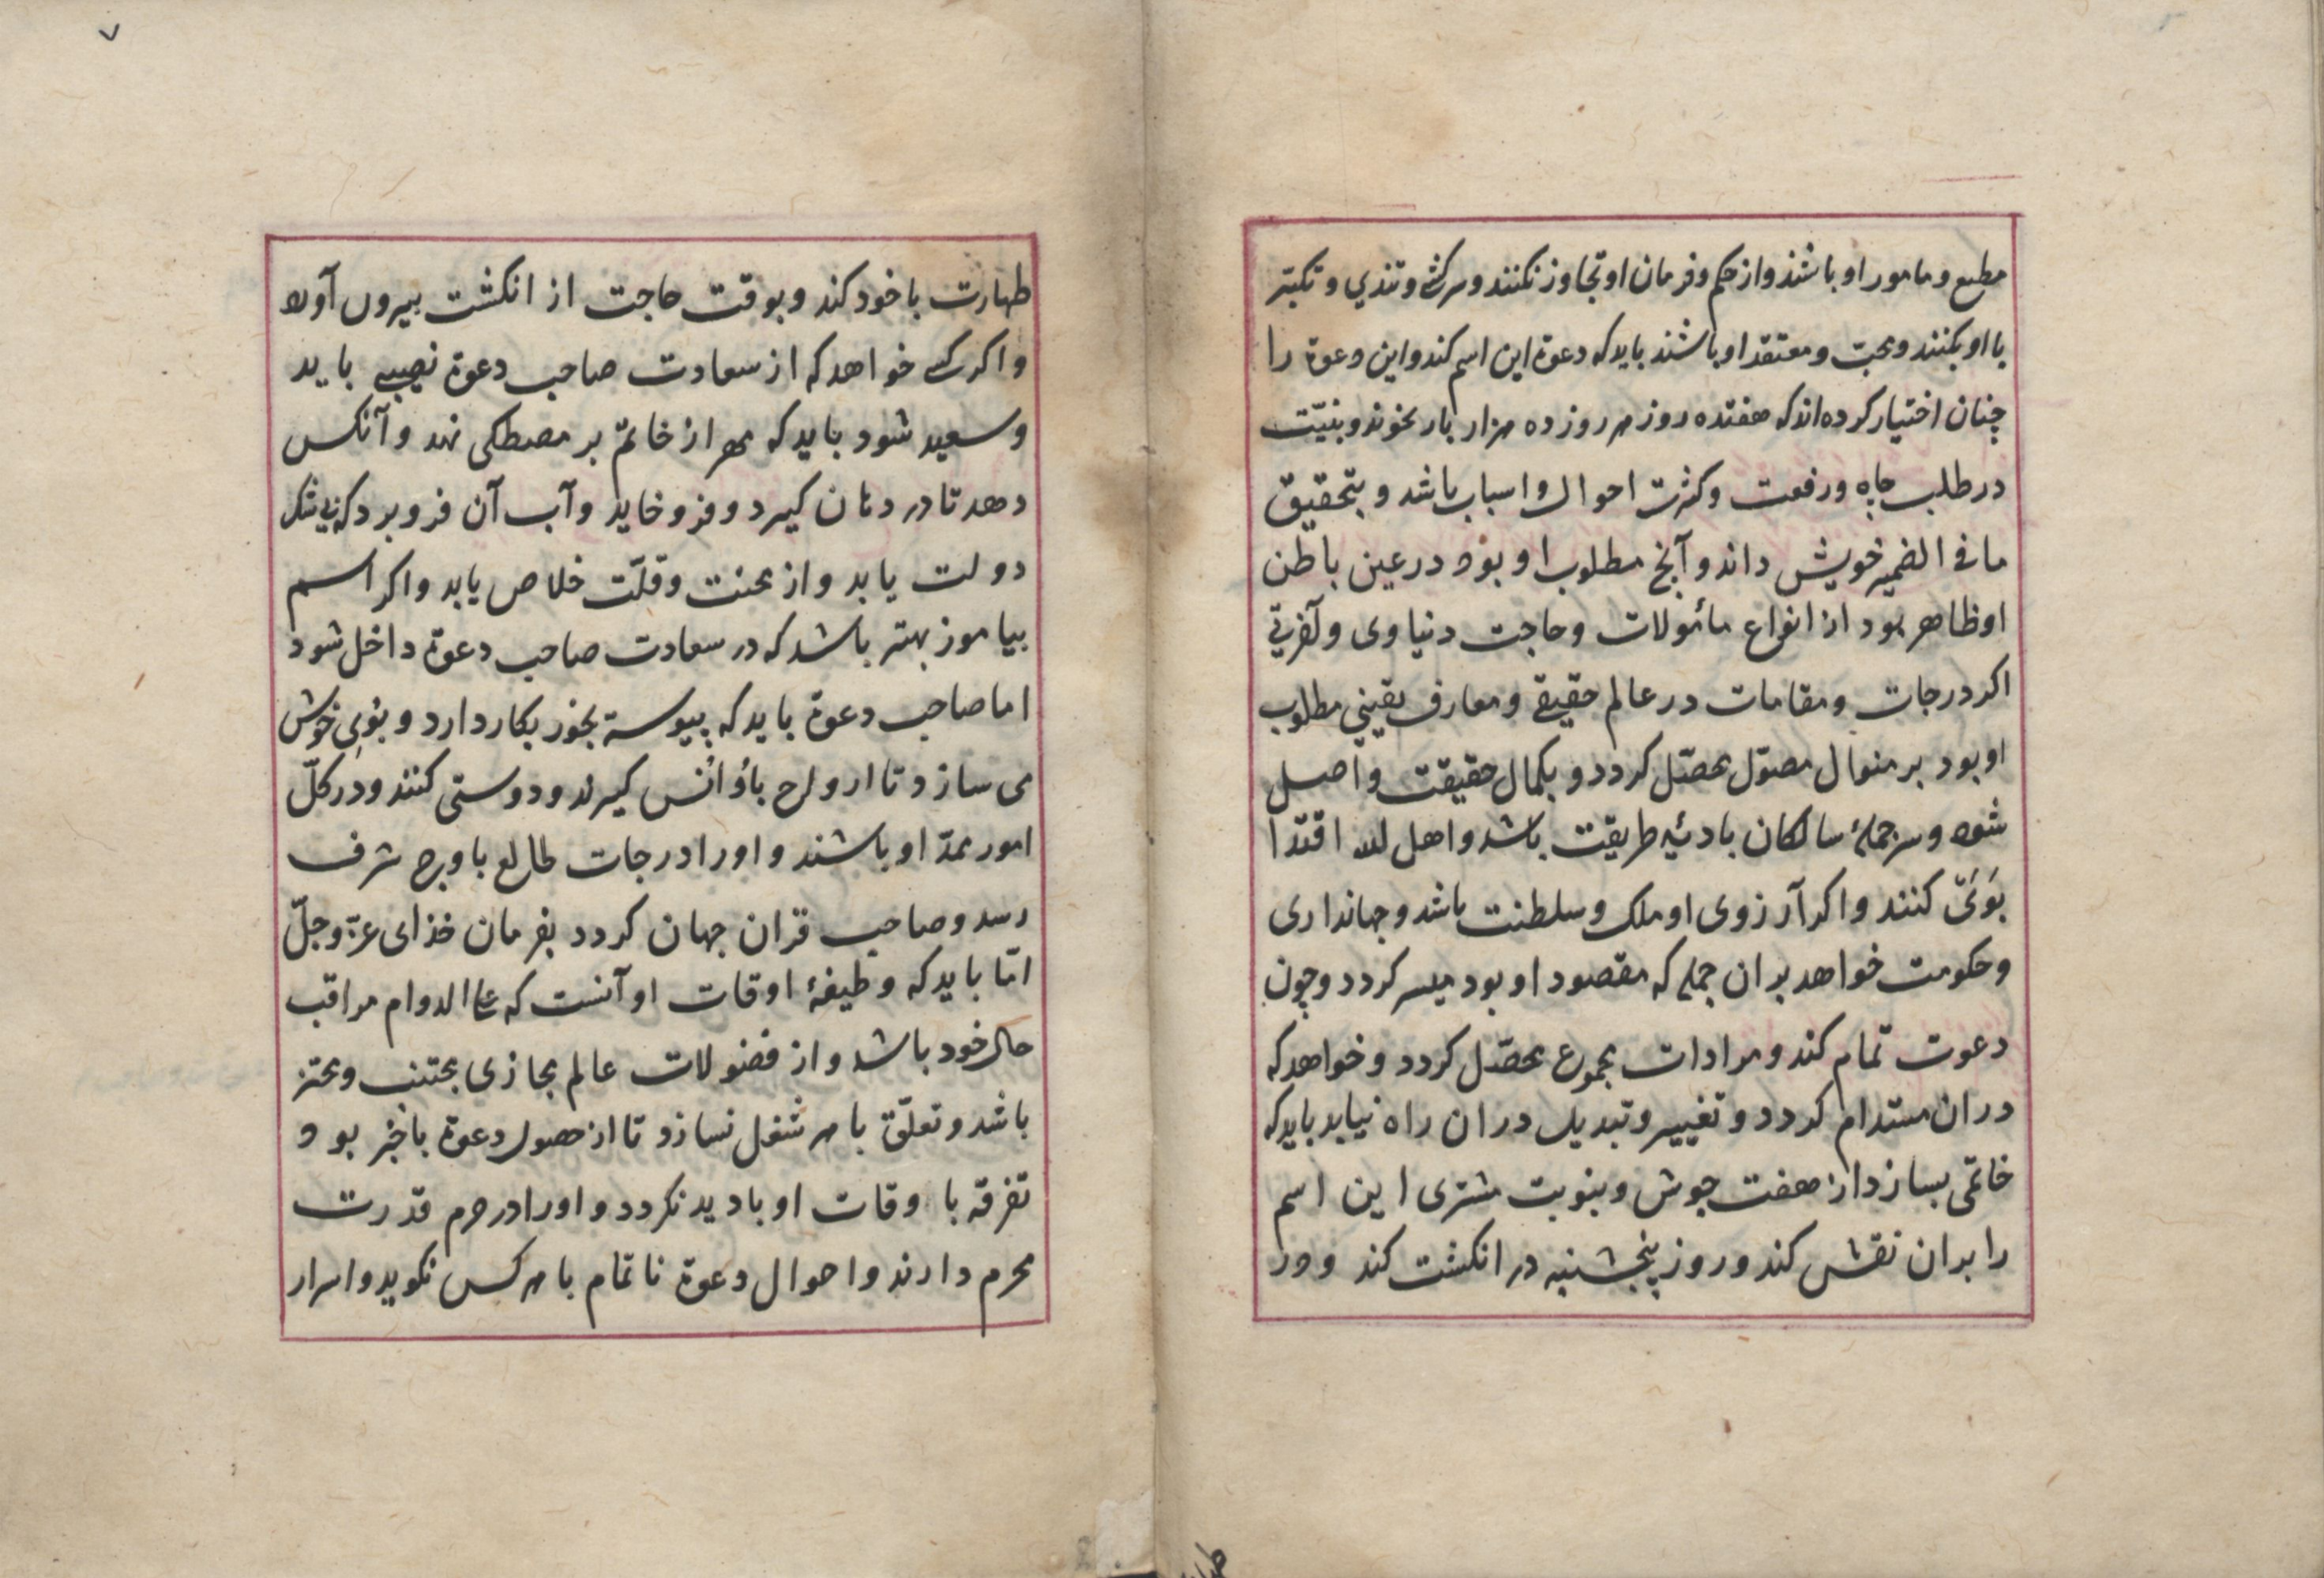 مطیع و مامور او باشند و از حکم و فرمان او تجاوز نکنند و سرکشی و تندی و تکبّر
با او نکنند و محبّ و معتقد او باشند باید که دعوة این اسم کند و این دعوة را
چنان اختیار کرده‌اند که هفتده روز هر روز ده هزار بار بخوند و بنیّت
در طلب جاه و رفعت و کثرت احوال و اسباب باشد و بتحقیق
ما فی الضمیر خویش داند و آنچ مطلوب او بود در عین باطن
او ظاهر بود از انواع مائمولات و حاجت دنیاوی و آخرتی
اکر درجات و مقامات در عالم حقیقی و معارف یقینی مطلوب
او بود بر منوال مصوّل محصّل کردد و بکمال حقیقت واصل
شود و سرجملۀ سالکان بادئیه طریقت باشد و اهل الله اقتدا
بَوَیّ کنند و اکر آرزوی او ملک و سلطنت باشد و جهانداری
و حکومت خواهد بران جمله که مقصود او بود میسر کردد و چون
دعوت تمام کند و مرادات بجموع محصّل کردد و خواهد که
دران مستدام کردد و تغییر و تبدیل دران راه نیابد باید که
خاتمی بسازد از هفت جوش و بنوبت مشتری این اسم
را بران نقش کند و روز پنجشنبه در انکشت کند و در
طهارت با خود کند و بوقت حاجت از انکشت بیرون آورد
و اکر کسی خواهد که از سعادت صاحب دعوة نصیبی یابد
و سعید شود باید که مهر از خاتم بر مصطکی نهد و آنکس
دهد تا در دهان کیرد و فرو خاید و آب آن فرو برد که بی شک
دولت یابد و از محنت و قلّت خلاص یابد و اکر اسم
بیاموز بهتر باشد که در سعادت صاحب دعوة داخل شود
اما صاحب دعوة باید که پیوسته بخور بکار دارد و بوی خوش
می سازد تا ارواح باؤ انس کیرند و دوستی کنند و در کلّ
امور ممدّ او باشند و او را درجات طالع باوج شرف
رسد و صاحب قران جهان کردد بفرمان خذای عزّ و جلّ
امّا باید که وظیفۀ اوقات او آنست که علی الدوام مراقب
حال خود باشد و از فضولات عالم مجازی مجتنب و محترز
باشد و تعلّق با هر شغل نسازد تا از حصول دعوة باخبر بود
تفرقه با وقات او بادید نکردد و او را در حرم قدرت
محرم دارند و احوال دعوة ناتمام با هر کس نکوید و اسرار